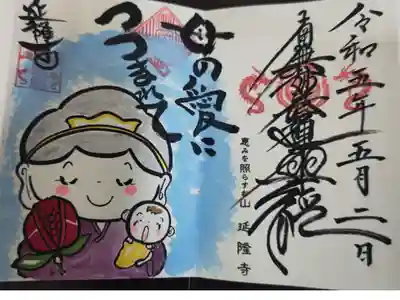 令和五年五月二日
恵みを照らすお山 延隆寺
母の愛に
つつまれて
延隆寺